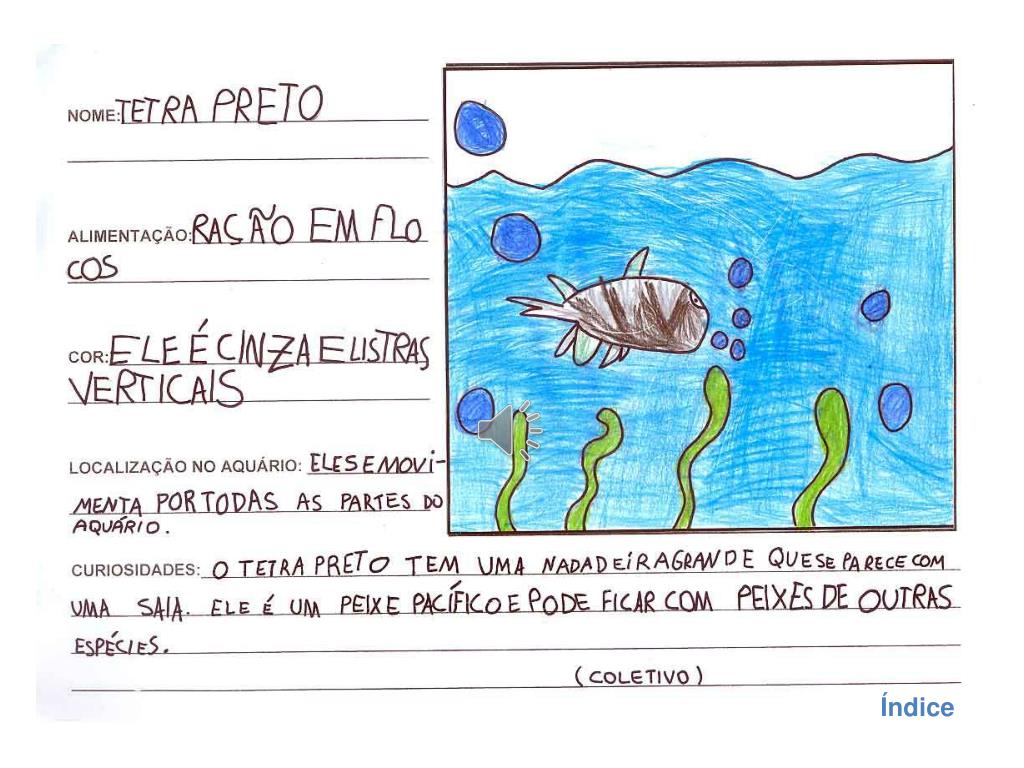 NOME: TETRA PRETO
ALIMENTAÇÃO: RAÇÃO EM FLO
COS
COR: ELE É CINZA E LISTRAS
VERTICAIS
LOCALIZAÇÃO NO AQUÁRIO: ELE SE MOVI-
MENTA POR TODAS AS PARTES DO
AQUÁRIO.
CURIOSIDADES: O TETRA PRETO TEM UMA NADADEIRA GRANDE QUE SE PARECE COM
UMA SAIA. ELE É UM PEIXE PACÍFICO E PODE FICAR COM PEIXES DE OUTRAS
ESPÉCIES.
(COLETIVO)
Índice